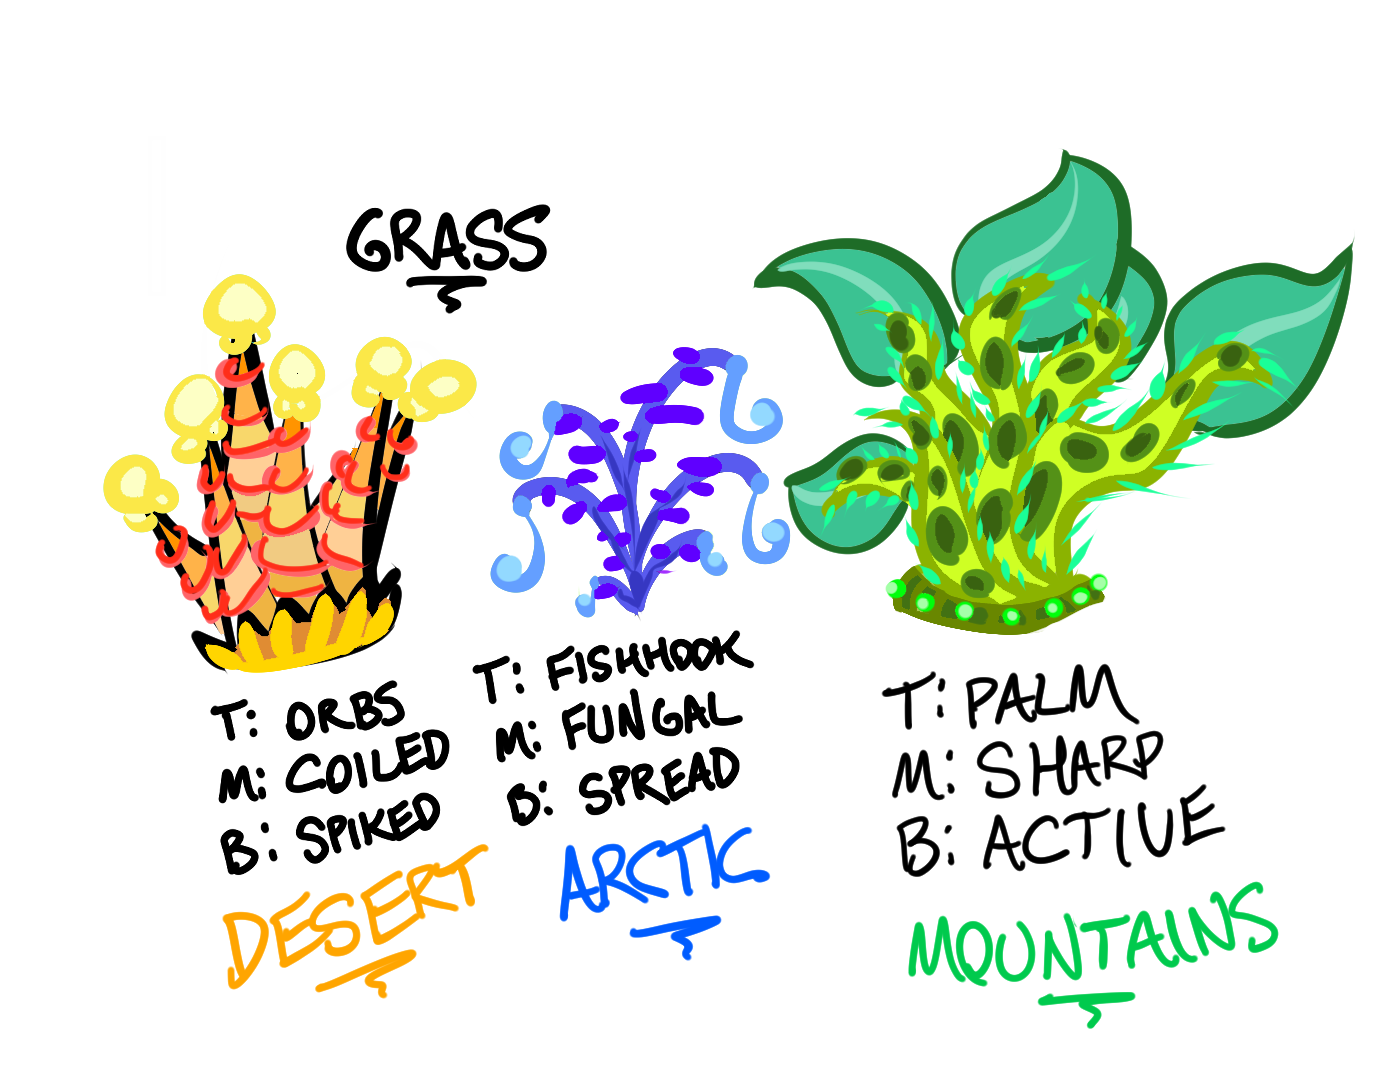 GRASS
T: ORBS
M: COILED
B: SPIKED
DESERT
T: FISHHOOK
M: FUNGAL
B: SPREAD
ARCTIC
T: PALM
M: SHARP
B: ACTIVE
MOUNTAINS